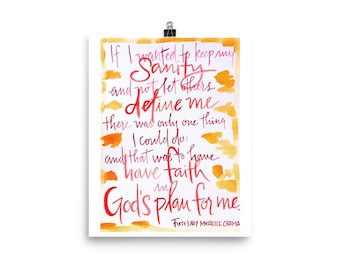 If I wanted to keep my
Sanity
and not let others
define me
there was only one thing
I could do:
and that was to have
have faith
in
God's plan for me.
First Lady Michelle Obama